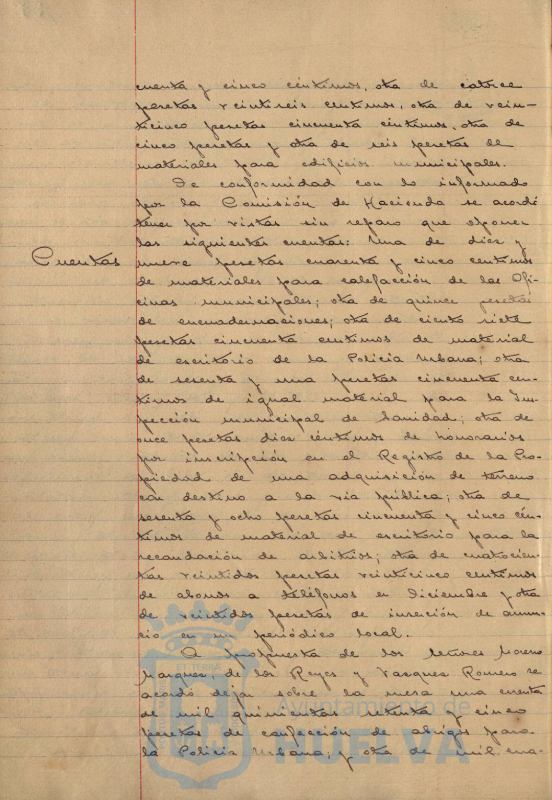 cuenta y cinco céntimos, otra de catorce
pesetas veintiseis centimos, otra de vein-
ticinco pesetas cincuenta céntimos, otra de
cinco pesetas y otra de seis pesetas de
materiales para edificios municipales.
De conformidad con lo informado
por la Comisión de Hacienda se acordó
tener por vistas sin reparo que oponer
las siguientes cuentas: Una de diez y
Cuentas
nueve pesetas cuarenta y cinco centimos
de materiales para calefacción de las Ofi-
cinas municipales; otra de quince pesetas
de encuadernaciones; otra de ciento siete
pesetas cincuenta centimos de material
de escritorio de la Policia Urbana; otra
de sesenta y una pesetas cincuenta cen-
timos de igual material para la Ins-
pección municipal de Sanidad; otra de
once pesetas diez céntimos de honorarios
por inscripción en el Registro de la Pro-
piedad de una adquisición de terreno
con destino a la via pública; otra de
sesenta y ocho pesetas cincuenta y cinco cén-
timos de material de escritorio para la
recaudación de arbitrios; otra de cuatrocien-
tas veintidos pesetas veinticinco centimos
de abonos a teléfonos en Diciembre y otra
de veintidos pesetas de inserción de anun-
cio en un periódico local.
A propuesta de los Señores Moreno
Marquez, de los Reyes y Vazques Romero se
acordó dejar sobre la mesa una cuenta
de mil quinientas setenta y cinco
pesetas de confección de abrigos para
la Policia Urbana, y otra de mil cua-
Ayuntamiento de
HUELVA